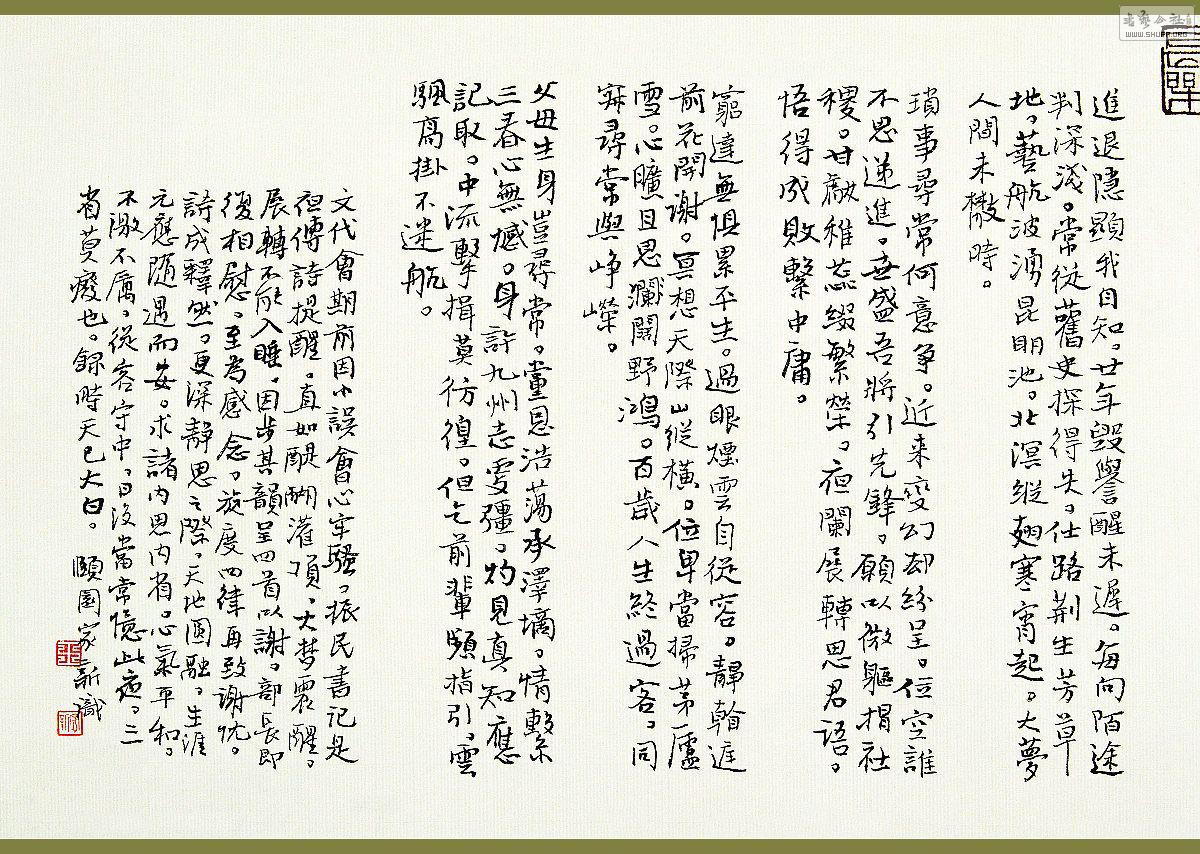 進退隱顯我自知。廿年毀譽醒未遲。每向陌途
判深淺。常從舊史探得失。仕路荆生芳草
地。藝航波湧昆明池。北溟縱翅寒宵起。大夢
人間未徹時。
瑣事尋常何意争。近来變幻却紛呈。位空誰
不思遞進。世盛吾將引先鋒。願以微軀捐社
稷。甘獻稚蕊綴繁榮。夜闌展轉思君語。
悟得成敗繫中庸。
窮達無惧累平生。過眼煙雲自從容。靜翰進
前花開謝。冥想天際山縱横。位卑當掃茅廬
雪。心曠且思瀾闊野鴻。百歲人生終過客。同
寐尋常與崢嶸。
父母生身豈尋常。黨恩浩蕩承澤墒。情繫
三春心無憾。身許九州志更彊。灼見真知應
記取。中流擊楫莫彷徨。但乞前輩頻指引。雲
颿高掛不迷航。
文代會期前因小誤會心牢騷。振民書記是
夜傳詩提醒。直如醍醐灌頂。大梦震醒。
展轉不能入睡。因步其韻呈四首以謝。部長即
復相慰。至為感念。旋度四律再致謝忱。
詩成釋然。更深靜思之際。天地圓融。生涯
元應隨遇而安。求諸内思内省。心氣平和。
不激不厲。從容守中。日後當常憶此夜。三
省莫癈也。録時天已大白。 頤園家新識
WWW.SHUFA.ORG